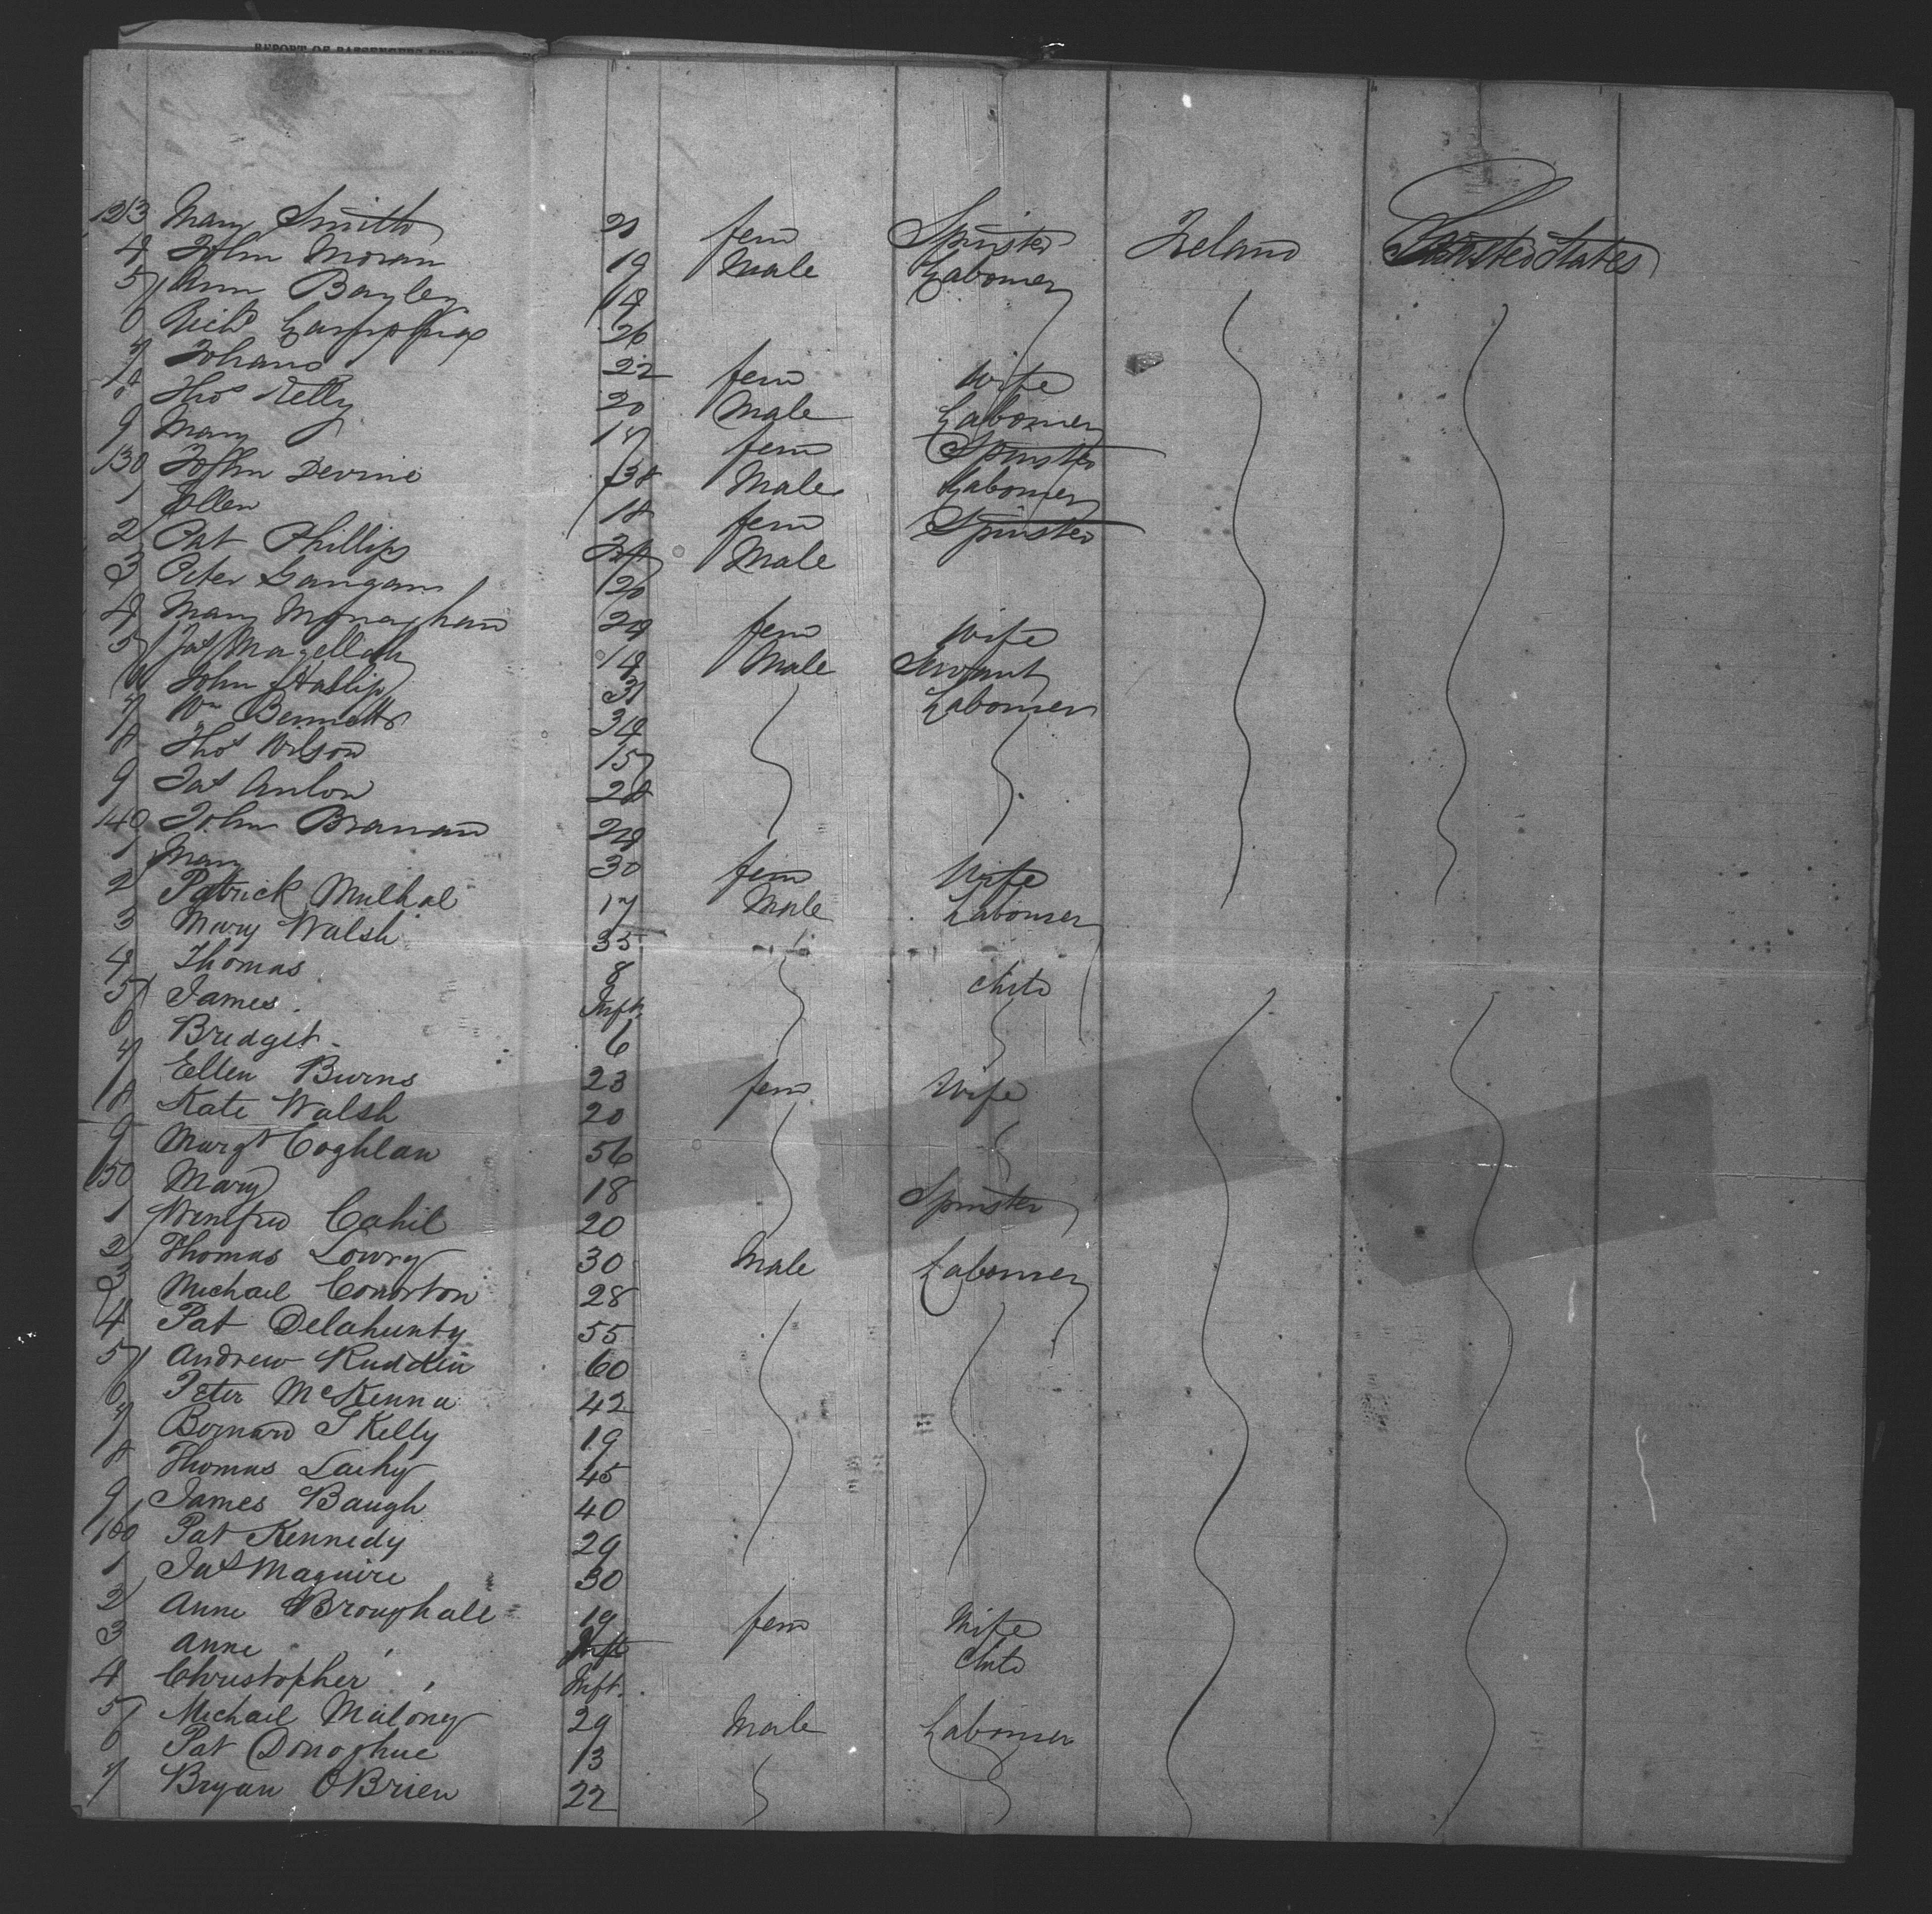 REPORT OF PASSENGERS FOR
123 Mary Smith 21 fem Spinster Ireland United States
4 John Moran 19 Male Labourer
5 Ann Bayley 14
6 Richd 26
7 Johana 22 fem Wife
8 Thos Kelly 20 Male Labourer
9 Mary 17 fem Spinster
130 John Devine 38 Male Labourer
1 Ellen 18 fem Spinster
2 Pat Phillips Male
3 Peter Gangan 20
4 Mary Monaghan 24 fem Wife
5 Jas 14 Male Servant
6 John Haslip 31 Labourer
7 Wm Bennett 34
8 Thos Wilson 15
9 Jas Anlon 28
140 John Branan 24
1 Mary 30 fem Wife
2 Patrick Mulhal 17 Male Labourer
3 Mary Walsh 35
4 Thomas 8 Child
5 James Inft.
6 Bridget 6
7 Ellen Burns 23 fem Wife
8 Kate Walsh 20
9 Margt Coghlan 56
150 Mary 18 Spinster
1 Winefred Cahil 20
2 Thomas Lowry 30 Male Labourer
3 Michael Conorton 28
4 Pat Delahunty 55
5 Andrew Ruddin 60
6 Peter McKenna 42
7 Bernard S Kelly 19
8 Thomas Laihy 45
9 James Baugh 40
160 Pat Kennedy 29
1 Jas Maguire 30
2 Anne Broughall 19 fem Wife
3 Anne Inft Child
4 Christopher Inft.
5 Michael Malony 29 Male Labourer
6 Pat Donoghue 13
7 Bryan OBrien 22